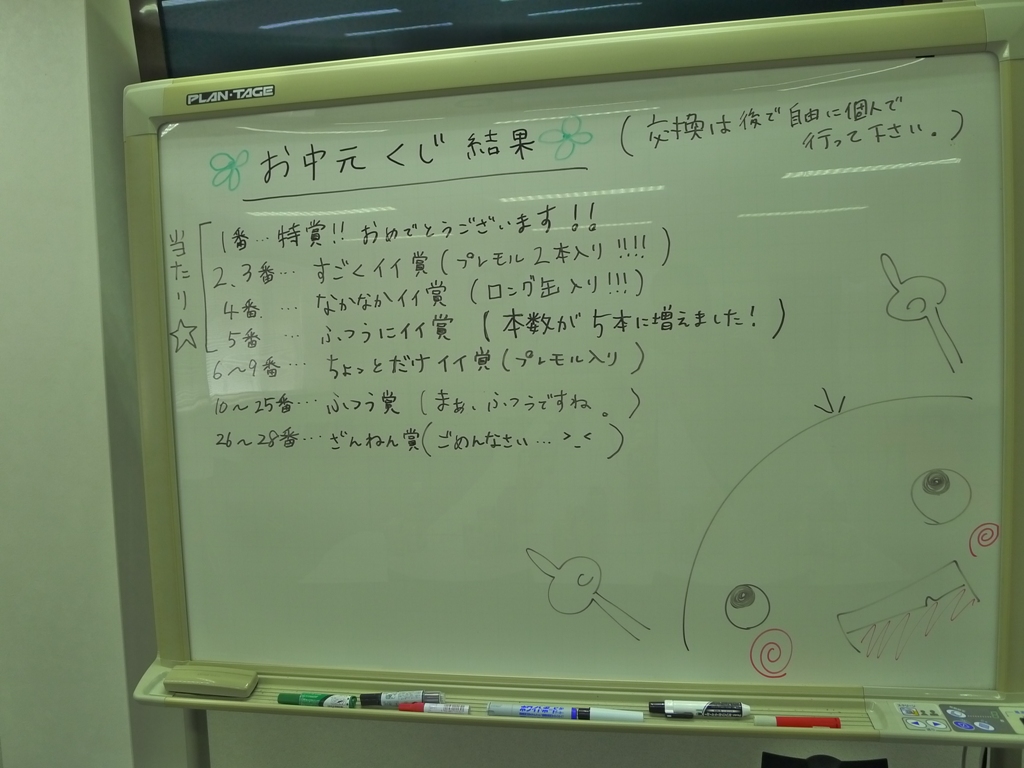 PLAN・TAGE
お中元くじ 結果
(交換は後で自由に個人で
行って下さい。)
当たり☆
1番…特賞!! おめでとうございます!!
2、3番… すごくイイ賞(プレモル2本入り!!!!)
4番. … なかなかイイ賞 (ロング缶入り!!!)
5番 … ふつうにイイ賞 (本数が5本に増えました!)
6〜9番… ちょっとだけイイ賞(プレモル入り)
10〜25番… ふつう賞 (まぁ、ふつうですね。)
26〜28番… ざんねん賞(ごめんなさい…>_<)
ホワイトボード